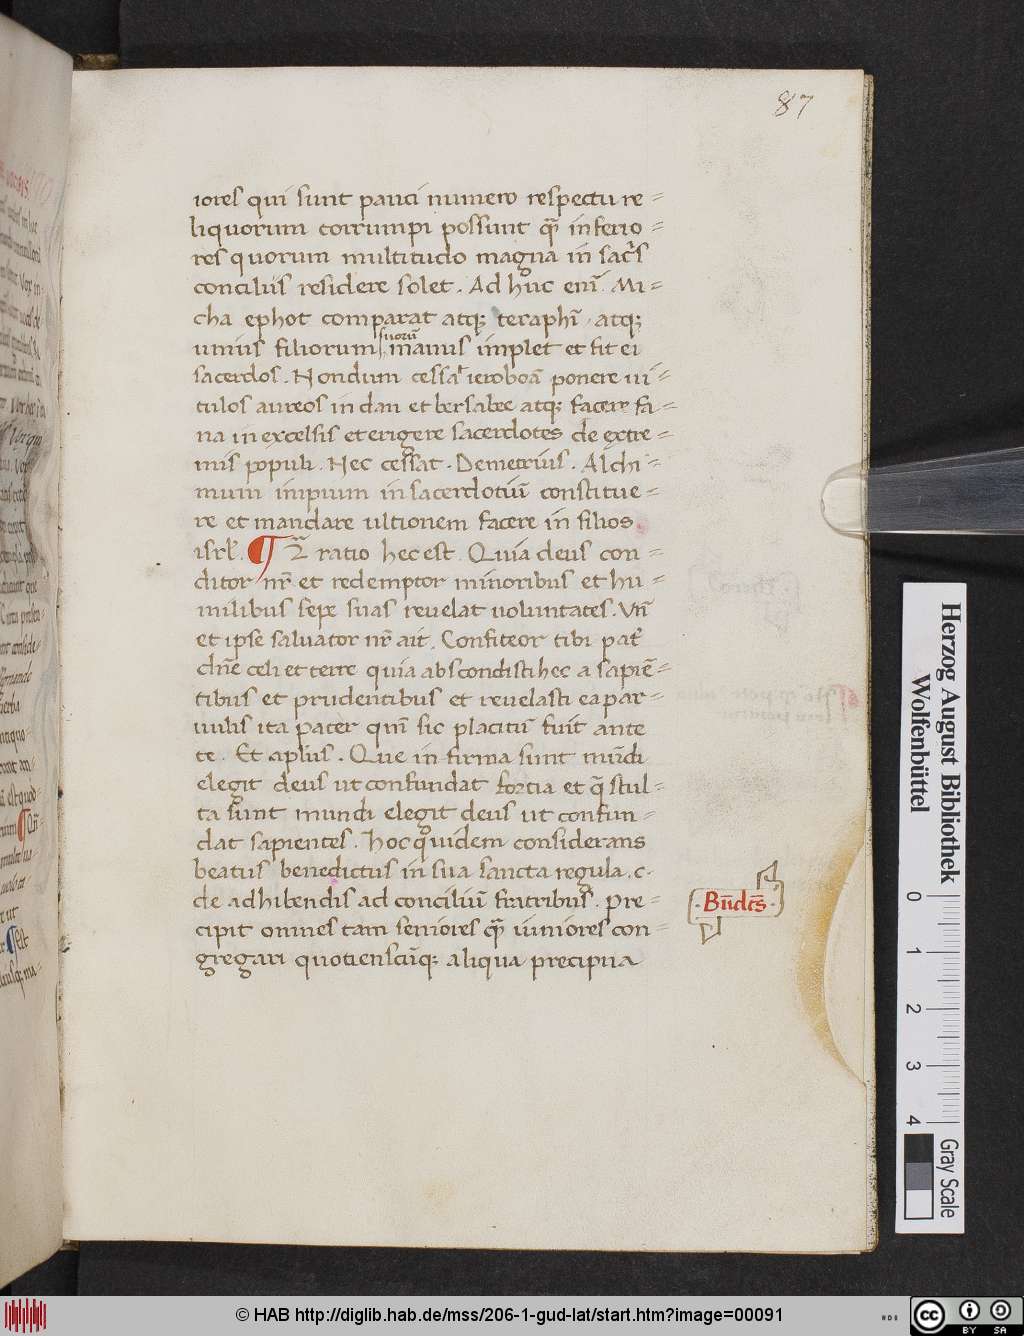 87
iores qui sunt pauci numero respectu re=
liquorum corrumpi possunt qͣ̄ inferio=
res quorum multitudo magna in sac̄s
conciliis residere solet. Ad huc enī. Mi=
cha ephot comparat atqꝫ teraphī. atqꝫ
unius filiorum suorū manus implet et fit ei
sacerdos. Nondum cessat ieroboā ponere ui=
tulos aureos in dan et bersabee atqꝫ facere fa=
na in excelsis et erigere sacerdotes de extre=
mis populi. Nec cessat. Demetrius. Alchi=
mum impium in sacerdotiū constitue=
re et mandare ultionem facere in filios
isrł. ratio hec est. Quia deus con=
ditor nr̄ et redemptor minoribus et hu=
milibus sepe suas reuelat uoluntates. Vn̄
et ipse saluator nr̄ ait. Confiteor tibi pat̄
dn̄e celi et terre quia abscondisti hec a sapiē=
tibus et prudentibus et reuelasti ea par=
uulis ita pater qm̄ sic placitū fuit ante
te. Et aplūs. Que infirma sunt mūdi
elegit deus ut confundat fortia et q̄ stul=
ta sunt mundi elegit deus ut confun=
dat sapientes. Hoc quidem considerans
beatus benedictus in sua sancta regula. c.
de adhibendis ad conciliū fratribus. Pre=
·Bn̄dc̄s·
cipit omnes tam seniores qͣ̄ iuniores con=
gregari quotienscūqꝫ aliqua precipua
Herzog August Bibliothek
Wolfenbüttel
0 1 2 3 4
Gray Scale
© HAB http://diglib.hab.de/mss/206-1-gud-lat/start.htm?image=00091
cc BY SA